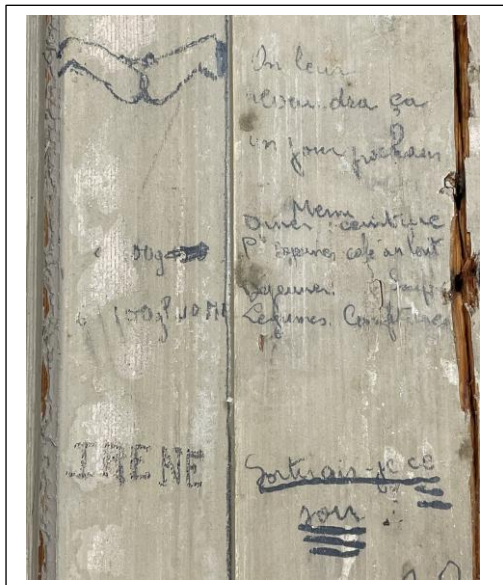 On leur
revaudra ça
un jour prochain
Menu
Diner: ceinture
P. dejeuner café au lait
dejeuner. Soupe
Legumes. Confitures
100g
IRENE
Sortirais-je ce
soir